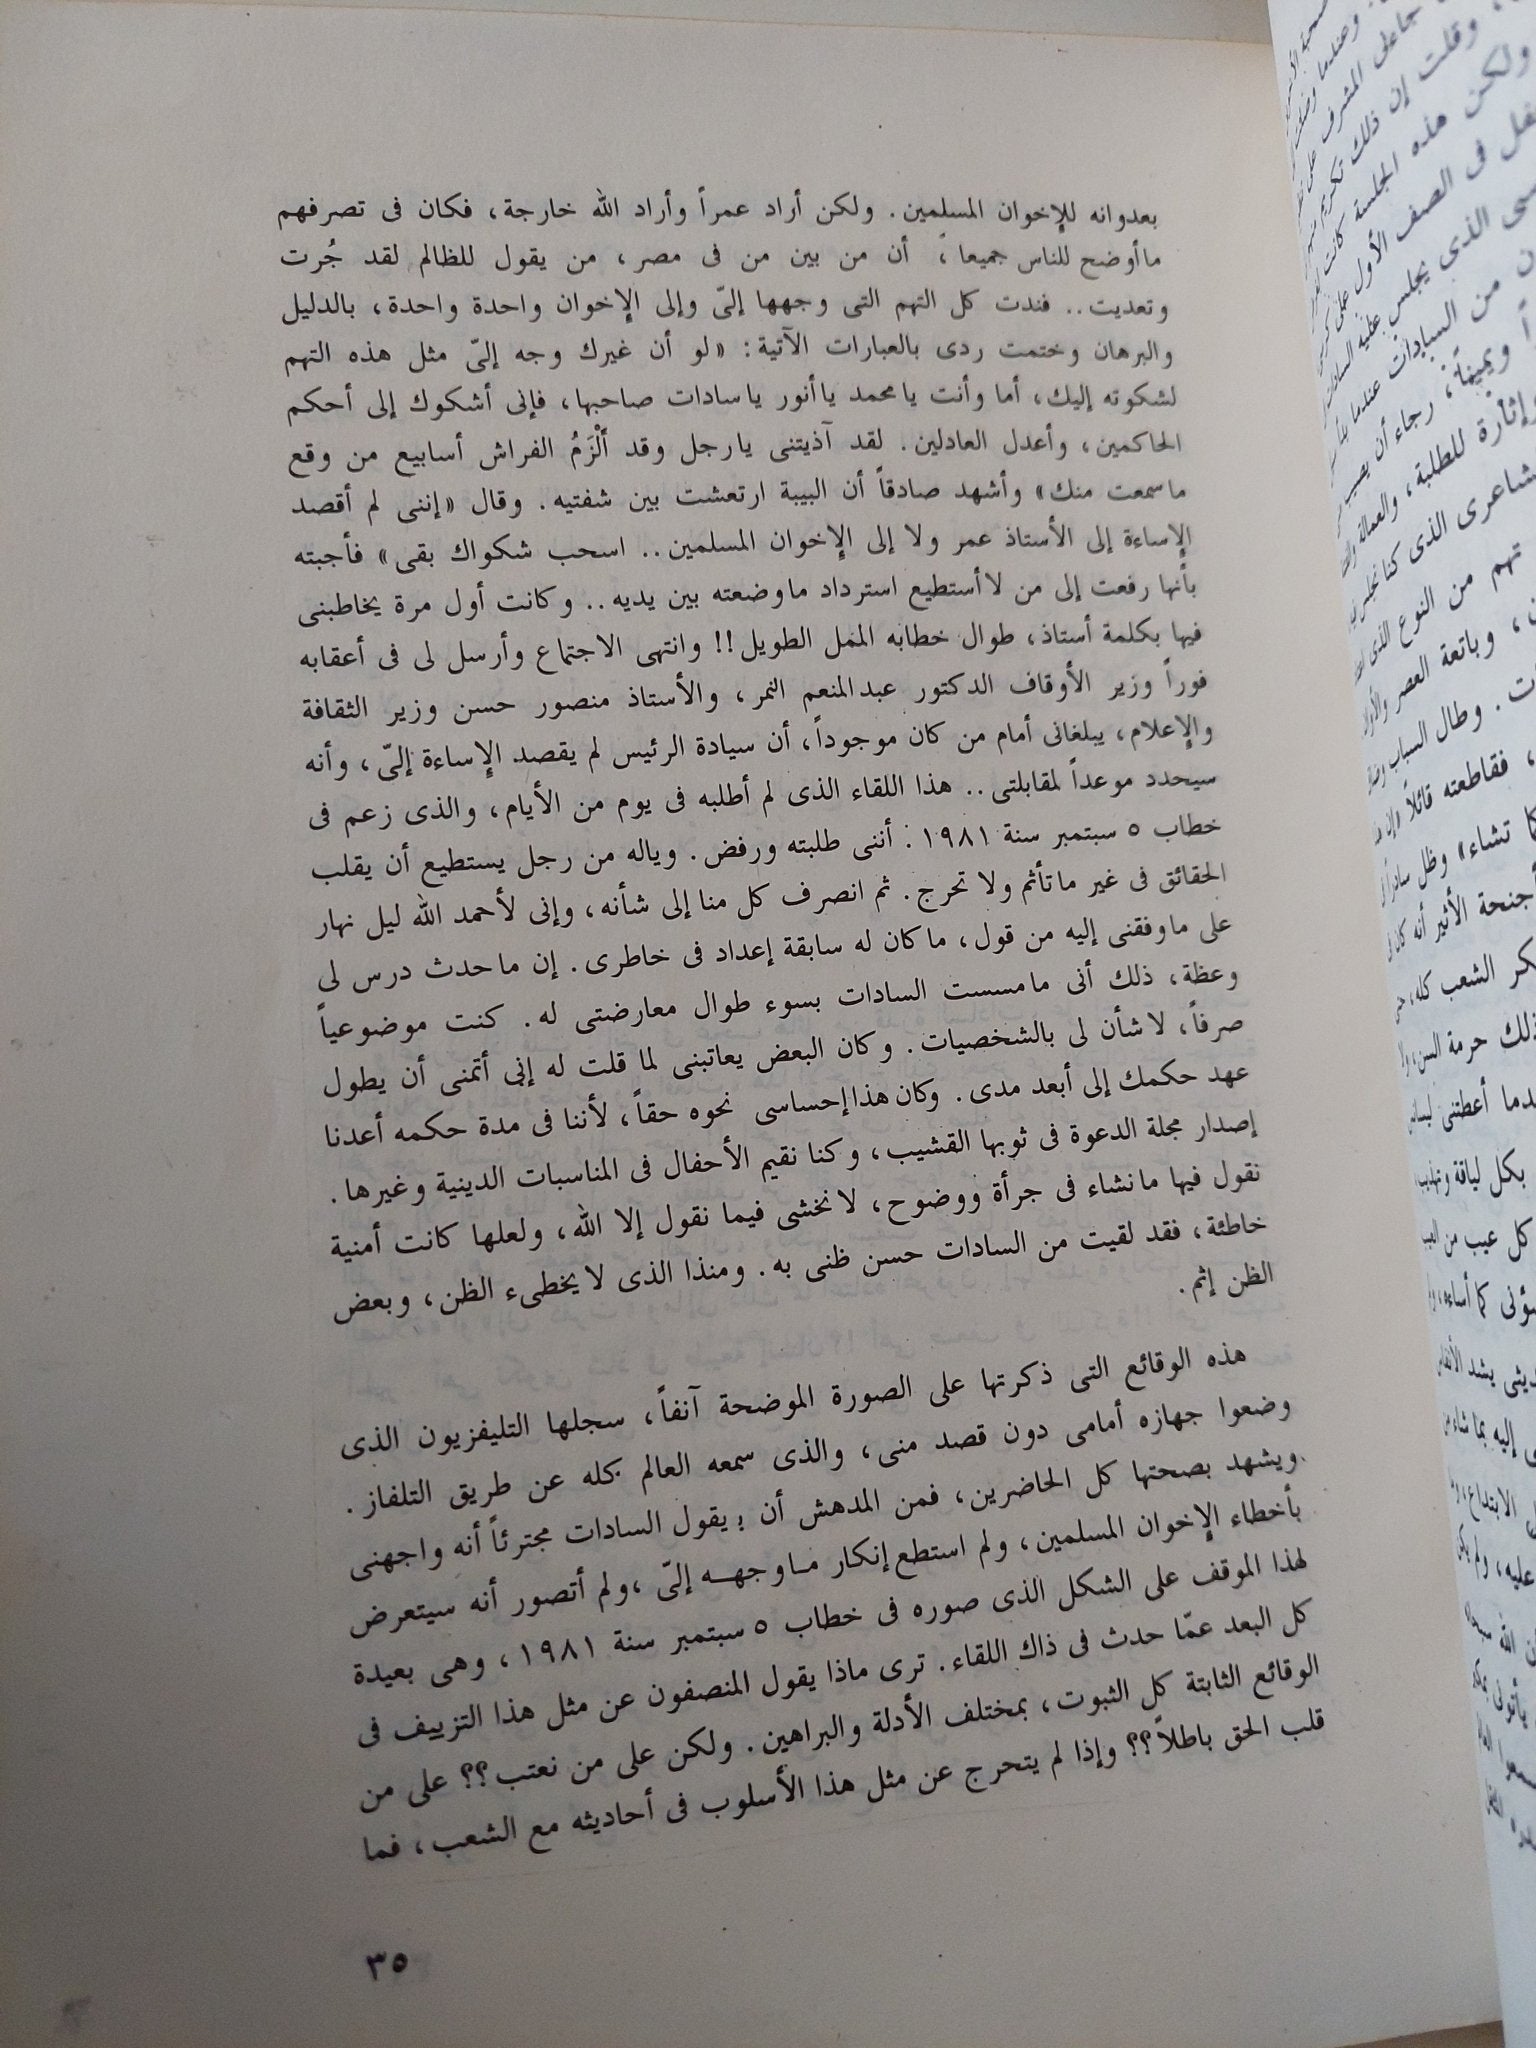 بعدوانه للإخوان المسلمين. ولكن أراد عمراً وأراد الله خارجة، فكان فى تصرفهم
ماأوضح للناس جميعاً، أن من بين من فى مصر، من يقول للظالم لقد جُرت
وتعديت.. فندت كل التهم التى وجهها إلىّ وإلى الإخوان واحدة واحدة، بالدليل
والبرهان وختمت ردى بالعبارات الآتية: «لو أن غيرك وجه إلىّ مثل هذه التهم
لشكوته إليك، أما وأنت يامحمد ياأنور ياسادات صاحبها، فإنى أشكوك إلى أحكم
الحاكمين، وأعدل العادلين. لقد آذيتنى يارجل وقد أَلْزَمُ الفراش أسابيع من وقع
ماسمعت منك» وأشهد صادقاً أن البيبة ارتعشت بين شفتيه. وقال «إننى لم أقصد
الإساءة إلى الأستاذ عمر ولا إلى الإخوان المسلمين.. اسحب شكواك بقى» فأجبته
بأنها رفعت إلى من لاأستطيع استرداد ماوضعته بين يديه.. وكانت أول مرة يخاطبنى
فيها بكلمة أستاذ، طوال خطابه الممل الطويل!! وانتهى الاجتماع وأرسل لى فى أعقابه
فوراً وزير الأوقاف الدكتور عبدالمنعم النمر، والأستاذ منصور حسن وزير الثقافة
والإعلام، يبلغانى أمام من كان موجوداً، أن سيادة الرئيس لم يقصد الإساءة إلىّ، وأنه
سيحدد موعداً لمقابلتى.. هذا اللقاء الذى لم أطلبه فى يوم من الأيام، والذى زعم فى
خطاب ٥ سبتمبر سنة ١٩٨١: أننى طلبته ورفض. وياله من رجل يستطيع أن يقلب
الحقائق فى غير ماتأثم ولا تحرج. ثم انصرف كل منا إلى شأنه، وإنى لأحمد الله ليل نهار
على ماوفقنى إليه من قول، ماكان له سابقة إعداد فى خاطرى. إن ماحدث درس لى
وعظة، ذلك أنى مامسست السادات بسوء طوال معارضتى له. كنت موضوعياً
صرفاً، لاشأن لى بالشخصيات. وكان البعض يعاتبنى لما قلت له إنى أتمنى أن يطول
عهد حكمك إلى أبعد مدى. وكان هذا إحساسى نحوه حقاً، لأننا فى مدة حكمه أعدنا
إصدار مجلة الدعوة فى ثوبها القشيب، وكنا نقيم الأحفال فى المناسبات الدينية وغيرها.
نقول فيها مانشاء فى جرأة ووضوح، لانخشى فيما نقول إلا الله، ولعلها كانت أمنية
خاطئة، فقد لقيت من السادات حسن ظنى به. ومنذا الذى لايخطىء الظن، وبعض
الظن إثم.
هذه الوقائع التى ذكرتها على الصورة الموضحة آنفاً، سجلها التليفزيون الذى
وضعوا جهازه أمامى دون قصد منى، والذى سمعه العالم كله عن طريق التلفاز.
ويشهد بصحتها كل الحاضرين، فمن المدهش أن يقول السادات مجترئاً أنه واجهنى
بأخطاء الإخوان المسلمين، ولم استطع إنكار ماوجهه إلىّ، ولم أتصور أنه سيتعرض
لهذا الموقف على الشكل الذى صوره فى خطاب ٥ سبتمبر سنة ١٩٨١، وهى بعيدة
كل البعد عمّا حدث فى ذاك اللقاء. ترى ماذا يقول المنصفون عن مثل هذا التزييف فى
الوقائع الثابتة كل الثبوت، بمختلف الأدلة والبراهين. ولكن على من نعتب؟؟ على من
قلب الحق باطلاً؟؟ وإذا لم يتحرج عن مثل هذا الأسلوب فى أحاديثه مع الشعب، فما
٣٥